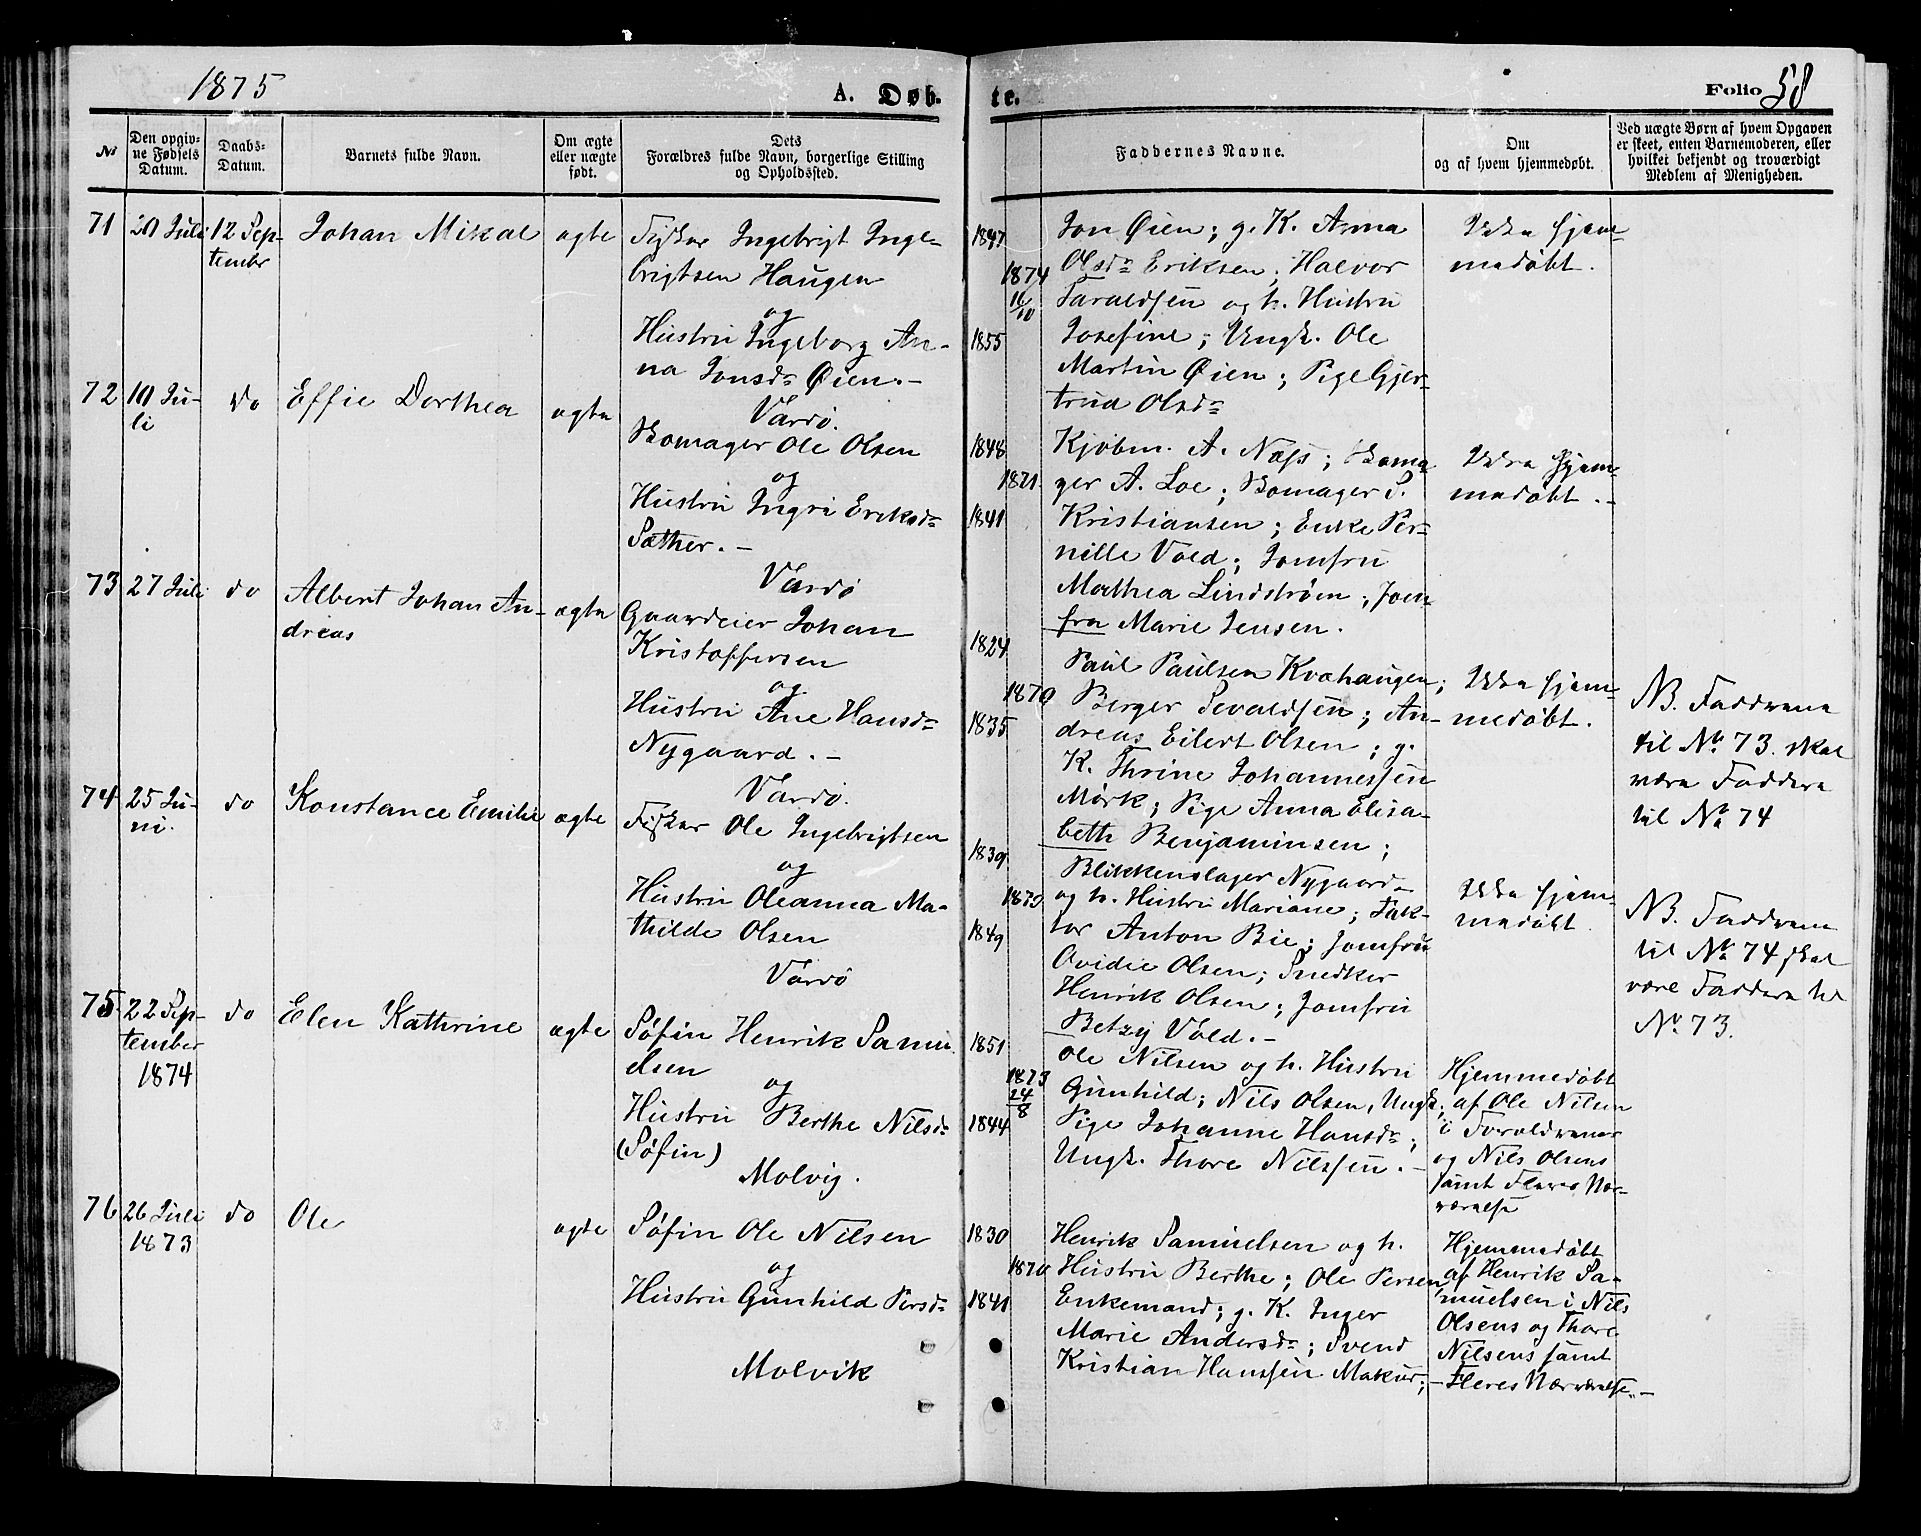 1875
A. Døb- te.
Folio 58
No
Den opgiv-
ne Fødsels
Datum.
Daabs-
Datum.
Barnets fulde Navn.
Om ægte
eller uægte
født.
Dets
Forældres fulde Navn, borgerlige Stilling
og Opholdssted.
Faddernes Navne.
Om
og af hvem hjemmedøbt.
Ved uægte Børn af hvem Opgaven
er skeet, enten Barnemoderen, eller
hvilket bekjendt og troværdigt
Medlem af Menigheden.
71
20 Juli
12 Sep-
tembr
Johan Mikal
ægte
Fisker Ingebrigt Inge-
brigtsen Haugen
og
Hustru Ingeborg An-
na Jonsdr Øien. -
Vardø.
1847
1874
16/10
1855
Jon Øien; g. K. Anna
Olsdr Eriksen; Halvor
Taraldsen og h. Hustru
Josefine; Ungk. Ole
Martin Øien; Pige Gjer-
trud Olsdr
Ikke hjem-
medøbt.
72
10 Ju-
li
do
Effie Dorthea
ægte
Skomager Ole Olsen
og
Hustru Ingri Eriksdr
Sæther. -
Vardø
1848
1871
1841
Kjøbm. A. Næss; Skoma-
ger A. Loe; Skomager P.
Kristiansen; Enke Per-
nille Vold; Jomfru
Mathea Lindstrøm; Jom-
fru Marie Jensen.
Ikke hjem-
medøbt. -
73
27 Juli
do
Albert Johan An-
dreas
ægte
Gaardeier Johan
Kristoffersen
og
Hustru Ane Hansdr
Nygaard. -
Vardø.
1824
1870
1835
Paul Paulsen Kvæhaugen;
Berger Sevaldsen; An-
dreas Eilert Olsen; g.
K. Thrine Johannessen
Mørk; Pige Anna Elisa-
beth Benjaminsen;
Ikke hjem-
medøbt.
NB. Faddrene
til No 73. skal
være Faddere
til No 74
74
25 Ju-
ni.
do
Konstance Emilie
ægte
Fisker Ole Ingebrigtsen
og
Hustru Oleanna Ma-
thilde Olsen
Vardø
1839
1873
1849
Blikkenslager Nygaard
og h. Hustru Mariane; Fak-
tor Anton Bie; Jomfru
Ovidie Olsen; Snedker
Henrik Olsen; Jomfru
Betzy Vold. -
Ikke hjem-
medøbt
NB. Faddrene
til No 74 skal
være Faddere til
No 73.
75
22 Sep-
tember
1874
do
Elen Kathrine
ægte
Søfin Henrik Samu-
elsen
og
Hustru Berthe Nilsdr
(Søfin)
Molvig.
1851
1873
24/8
1844
Ole Nilsen og h. Hustru
Gunhild; Nils Olsen, Ungk;
Pige Johanne Hansdr;
Ungk. Thore Nilssen. -
Hjemmedøbt
af Ole Nilsen
i Forældrenes
og Nils Olsens
samt Fleres Nær-
værelse
76
26 Juli
1873
do
Ole
ægte
Søfin Ole Nilsen
og
Hustru Gunhild Persdr
Molvik
1830
1870
1841
Henrik Samuelsen og h.
Hustru Berthe; Ole Persen
Enkemand; g. K. Inger
Marie Andersdr; Svend
Kristian Hanssen Makur; -
Hjemmedøbt
af Henrik Sa-
muelsen i Nils
Olsens og Thore
Nilsens samt
Fleres Nærværelse. -